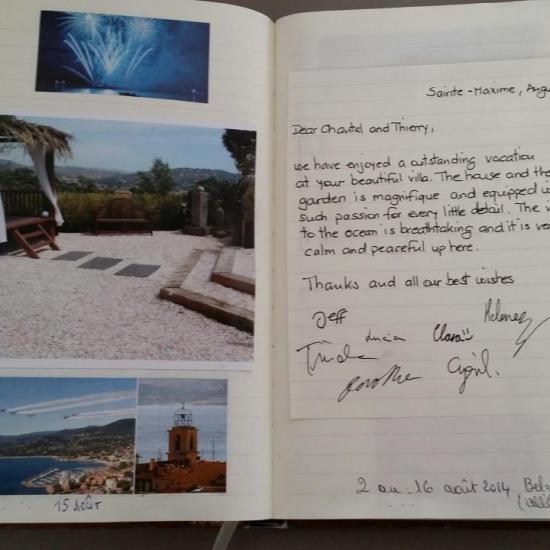 Sainte-Maxime, Aug
Dear Chantal and Thierry,
we have enjoyed a outstanding vacation
at your beautiful villa. The house and the
garden is magnifique and equipped
such passion for every little detail. The
to the ocean is breathtaking and it is
calm and peaceful up here.
Thanks and all our best wishes
Jeff
Helene
Lucia
Clara
Cyril.
15 Août
2 au 16 août 2014